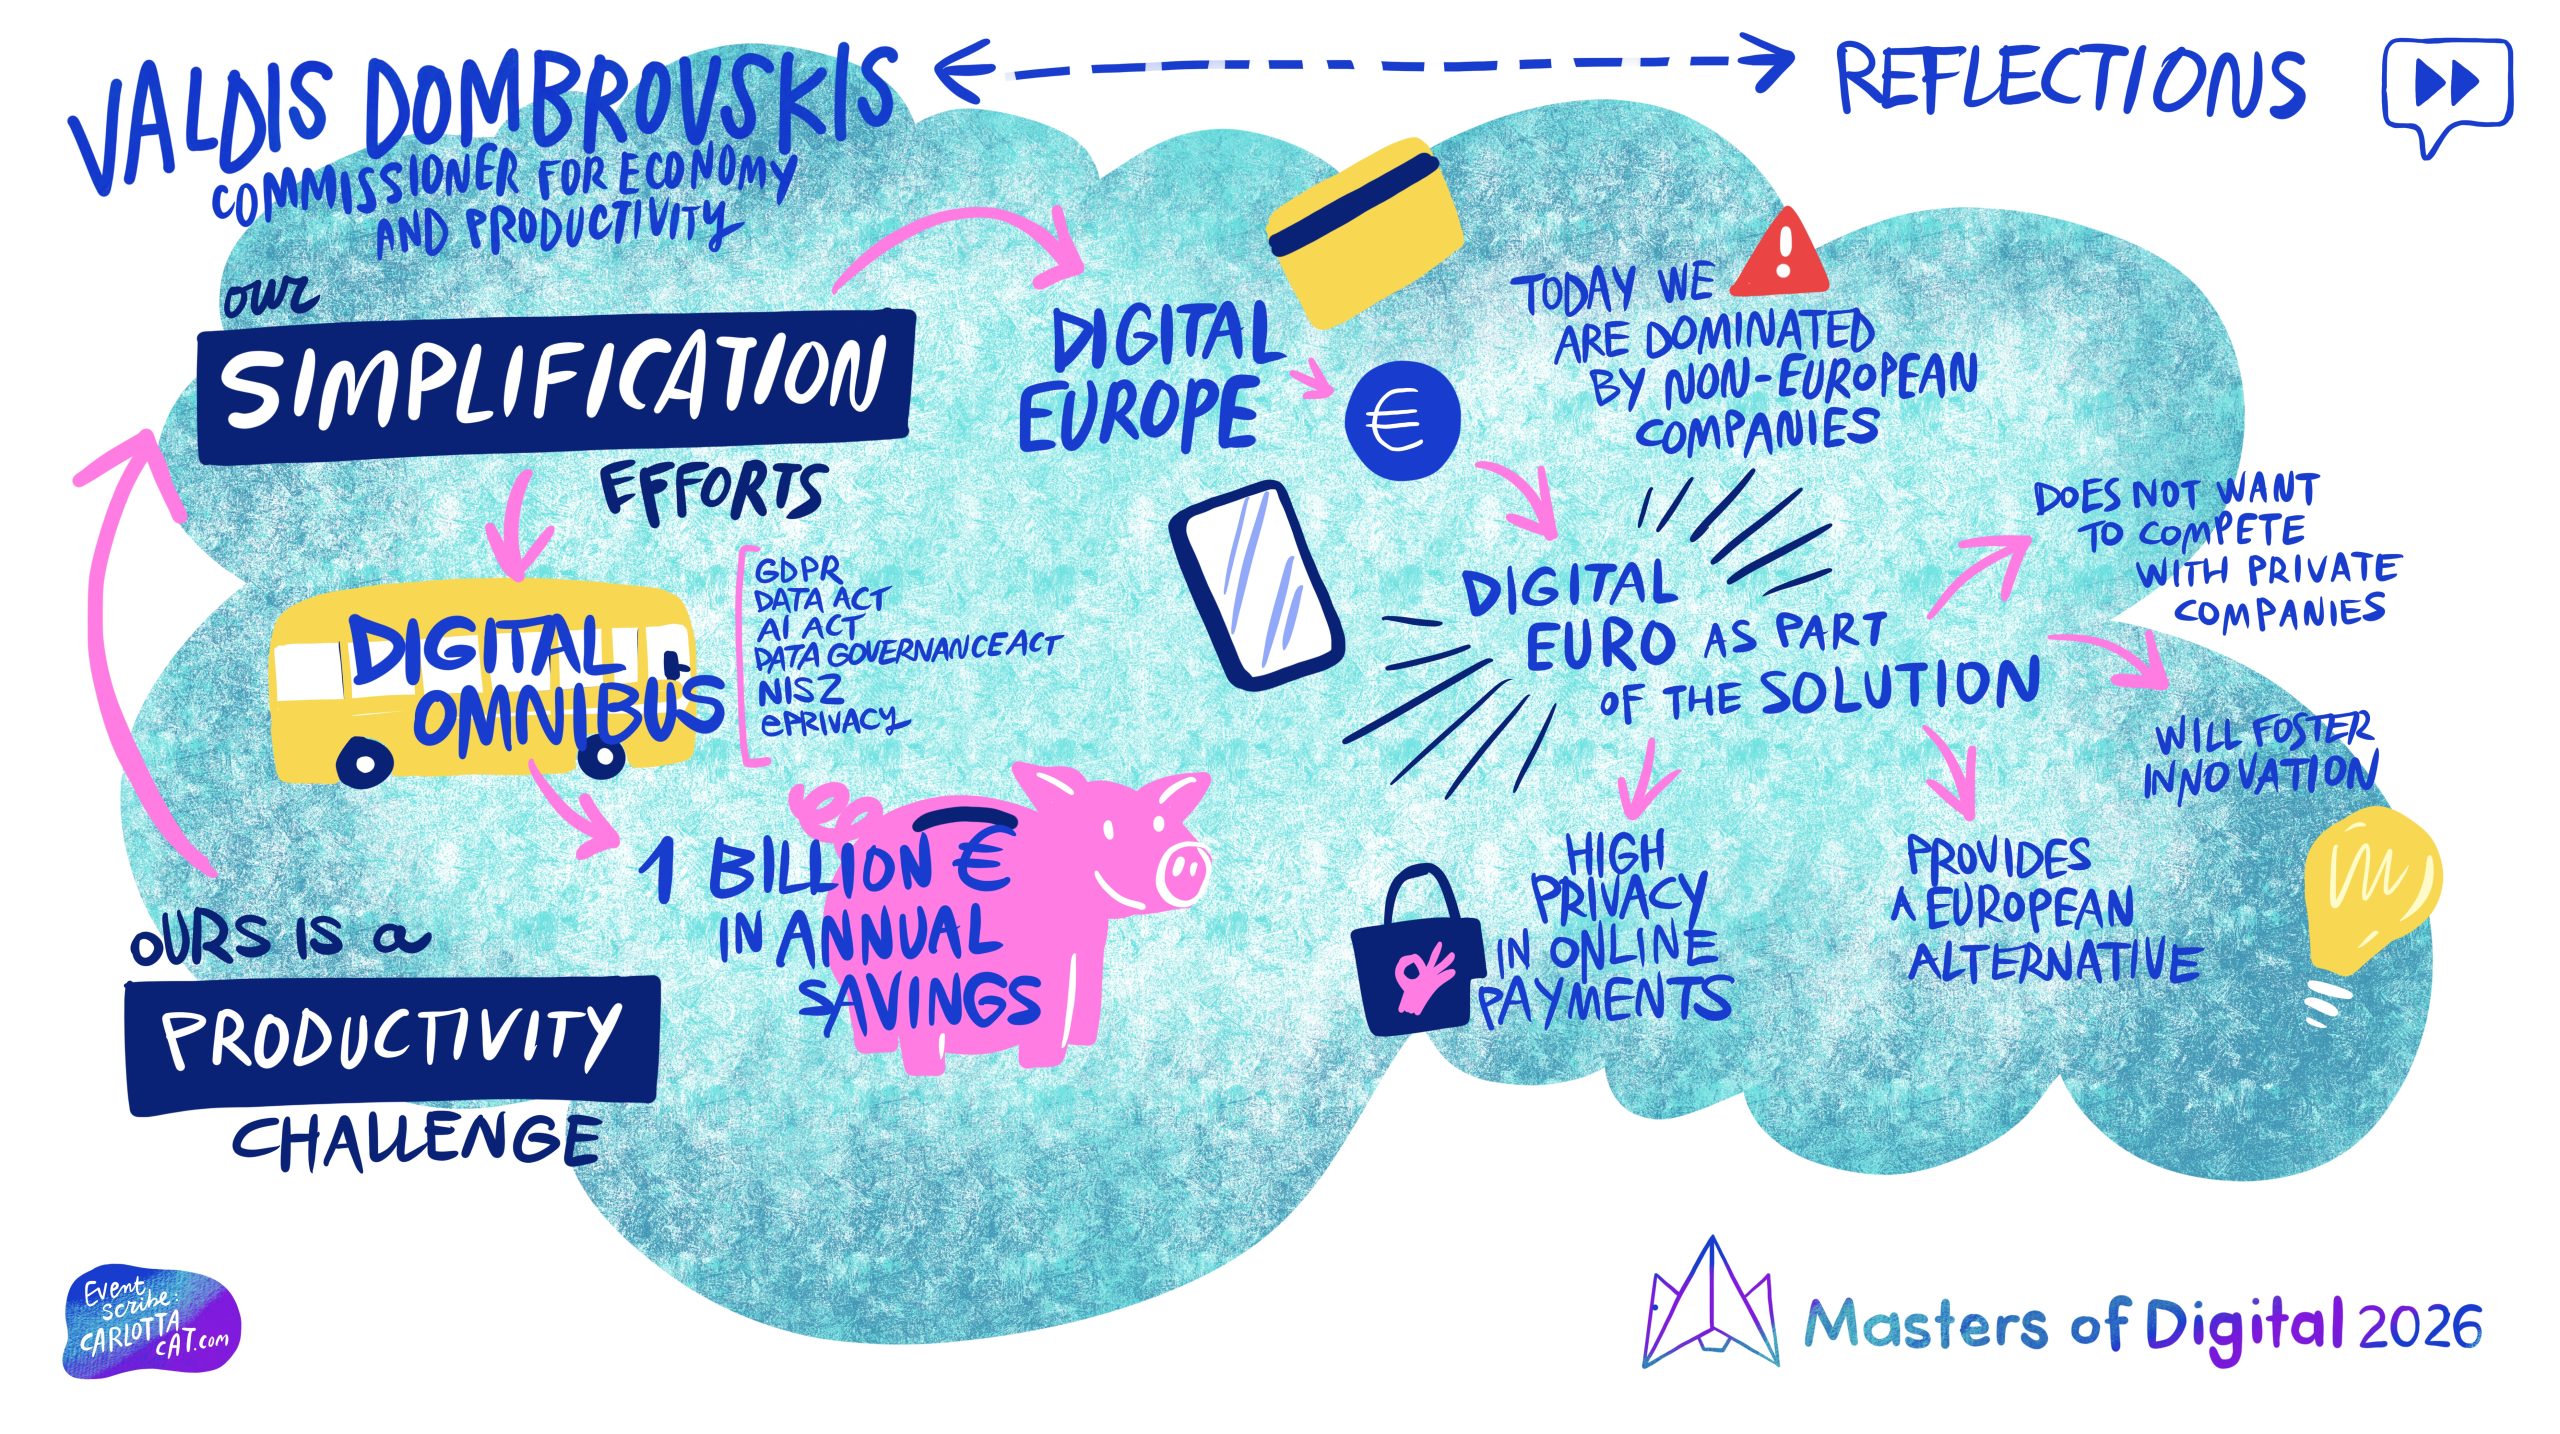 VALDIS DOMBROVSKIS
COMMISSIONER FOR ECONOMY
AND PRODUCTIVITY
REFLECTIONS
our
SIMPLIFICATION
EFFORTS
DIGITAL
OMNIBUS
GDPR
DATA ACT
AI ACT
DATA GOVERNANCE ACT
NIS2
ePRIVACY
1 BILLION €
IN ANNUAL
SAVINGS
OURS IS a
PRODUCTIVITY
CHALLENGE
DIGITAL
EUROPE
€
TODAY WE
ARE DOMINATED
BY NON-EUROPEAN
COMPANIES
DIGITAL
EURO AS PART
OF THE SOLUTION
DOES NOT WANT
TO COMPETE
WITH PRIVATE
COMPANIES
WILL FOSTER
INNOVATION
HIGH
PRIVACY
IN ONLINE
PAYMENTS
PROVIDES
A EUROPEAN
ALTERNATIVE
Event
scribe:
CARLOTTA
CAT.com
Masters of Digital 2026